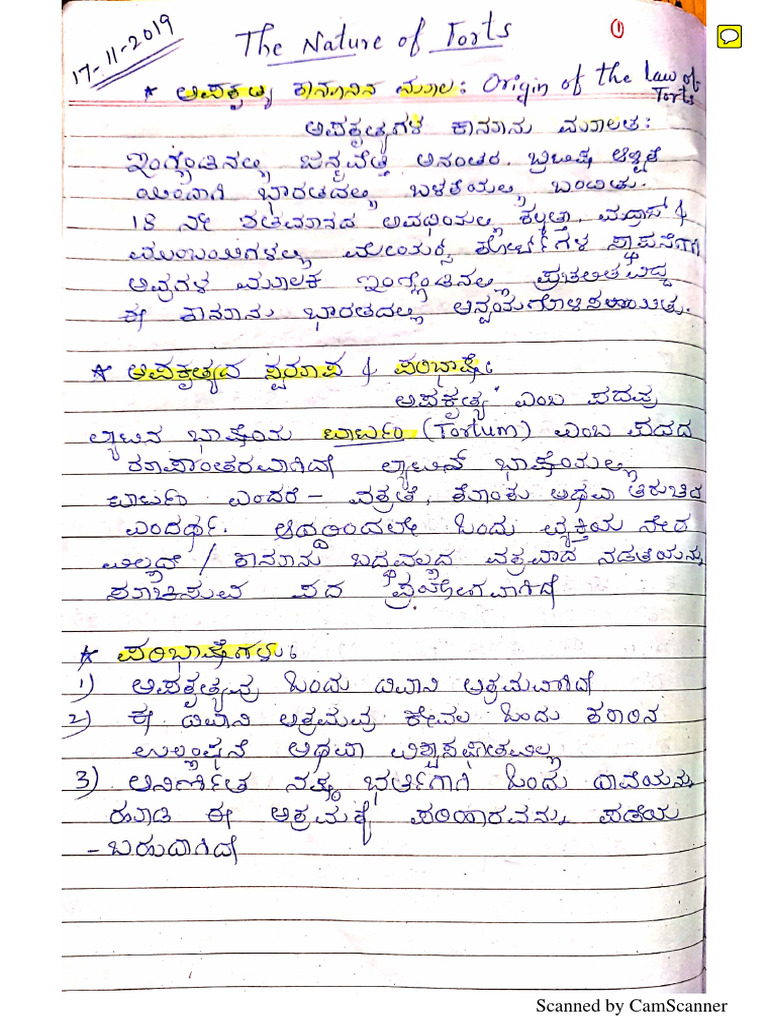 17-11-2019
The Nature of Torts
①
* ಅಪಕೃತ್ಯ ಕಾನೂನಿನ ಮೂಲ: Origin of the Law of
Torts
ಅಪಕೃತ್ಯಗಳ ಕಾನೂನು ಮೂಲತ:
ಇಂಗ್ಲೆಂಡಿನಲ್ಲಿ ಜನ್ಮವೆತ್ತಿ ಅನಂತರ. ಬ್ರಿಟಿಷ ಆಳ್ವಿಕೆ
ಯಿಂದಾಗಿ ಭಾರತದಲ್ಲಿ ಬಳಕೆಯಲ್ಲಿ ಬಂದಿತು.
18 ನೇ ಶತಮಾನದ ಅವಧಿಯಲ್ಲಿ ಕಲ್ಕತ್ತಾ, ಮದ್ರಾಸ್ &
ಮುಂಬಯಿಗಳಲ್ಲಿ ಮೇಯರ್ಸ ಕೋರ್ಟಗಳ ಸ್ಥಾಪನೆಗಾಗಿ
ಅವುಗಳ ಮೂಲಕ ಇಂಗ್ಲೆಂಡಿನಲ್ಲಿ ಪ್ರಚಲಿತವಿದ್ದ
ಈ ಕಾನೂನು ಭಾರತದಲ್ಲಿ ಅನ್ವಯಗೊಳಿಸಲಾಯಿತು.
* ಅಪಕೃತ್ಯದ ಸ್ವರೂಪ & ಪರಿಭಾಷೆ:
ಅಪಕೃತ್ಯ' ಎಂಬ ಪದವು
ಲ್ಯಾಟಿನ ಭಾಷೆಯ ಟಾರ್ಟಂ (Tortum) ಎಂಬ ಪದದ
ರೂಪಾಂತರವಾಗಿದೆ ಲ್ಯಾಟಿನ್ ಭಾಷೆಯಲ್ಲಿ
ಟಾರ್ಟಂ ಎಂದರೆ - ವಕ್ರತೆ, ಕೊಂಕು ಅಥವಾ ತಿರುಚಿದ
ಎಂದರ್ಥ. ಆದ್ದರಿಂದಲೇ ಒಂದು ವ್ಯಕ್ತಿಯ ನೇರ
ವಿಲ್ಲದ / ಕಾನೂನು ಬದ್ಧವಲ್ಲದ ವಕ್ರವಾದ ನಡತೆಯನ್ನು
ಸೂಚಿಸುವ ಪದ ಪ್ರಯೋಗವಾಗಿದೆ
* ಪರಿಭಾಷೆಗಳು:
1) ಅಪಕೃತ್ಯವು ಒಂದು ದಿವಾನಿ ಅಕ್ರಮವಾಗಿದೆ
2) ಈ ದಿವಾನಿ ಅಕ್ರಮವು ಕೇವಲ ಒಂದು ಕರಾರಿನ
ಉಲ್ಲಂಘನೆ ಅಥವಾ ವಿಶ್ವಾಸಘಾತವಲ್ಲ
3) ಅನಿರ್ಣೀತ ನಷ್ಟ ಭರ್ತಿಗಾಗಿ ಒಂದು ದಾವೆಯನ್ನು
ಹೂಡಿ ಈ ಅಕ್ರಮಕ್ಕೆ ಪರಿಹಾರವನ್ನು ಪಡೆಯ
- ಬಹುದಾಗಿದೆ
Scanned by CamScanner